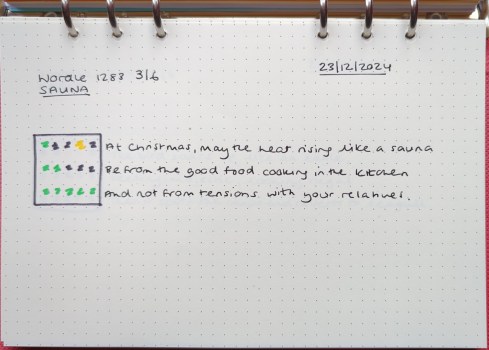 23/12/2024
Wordle 1283 3/6
SAUNA
At Christmas, may the heat rising like a sauna
Be from the good food cooking in the kitchen
And not from tensions with your relatives.